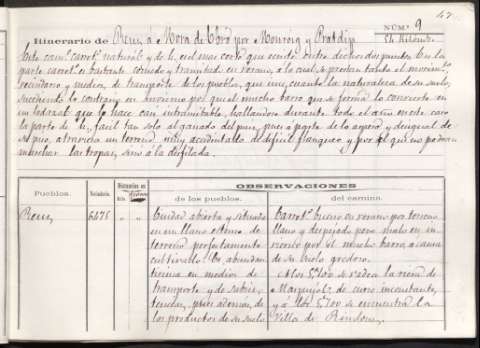 47
Itinerario de Reus, á Mora de Ebro por Monroig y Pratdip
NÚM.º 9
Este camº carretº natural y de h. es el mas corto que existe entre dichos dos puntos. En la
parte carretº es bastante cómodo y transitable en verano, á lo cual se prestan tanto el
vecindario y medios de transporte de los pueblos, que en cuanto la naturaleza de su suelo,
sucediendo lo contrario en invierno por que el mucho barro que se forma lo convierte en
un lodazal que lo hace casi intransitable, hallandose durante todo el año en este caso
la parte de h., facil tan solo al ganado del pais, pues á parte de lo aspero y desigual de
su piso, atraviesa un terreno muy accidentado de dificil flanqueo y por el que no podran
marchar las tropas, sino á la desfilada.
Pueblos.
Vecindario.
Distancias en
OBSERVACIONES
de los pueblos.
del camino.
Reus,
6478
" "
Ciudad abierta y situada
en un llano estenso de
terreno perfectamente
cultivado. Es abundan-
tísima en medios de
transporte y de subsis-
tencias, pues además, de
los productos de su suelo
Carretº bueno en verano por terreno
llano y despejado pero malo en in-
vierno por el mucho barro, á causa
de su suelo gredoso.
A los 5'700 se vadea la riera de
de curso inconstante,
y á los 5'700 se encuentra la
Villa de Riudoms,